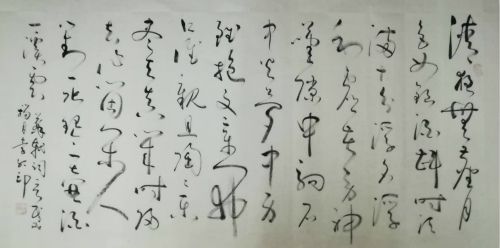 清夜無塵月
色如銀酒斟時須
滿十分浮名浮
利虛苦勞神
嘆隙中駒石
中火夢中身
雖抱文章開
口誰親且陶陶樂
盡天真幾時歸
去作個閑人
對一張琴一壺酒
一溪雲
蘇軾詞